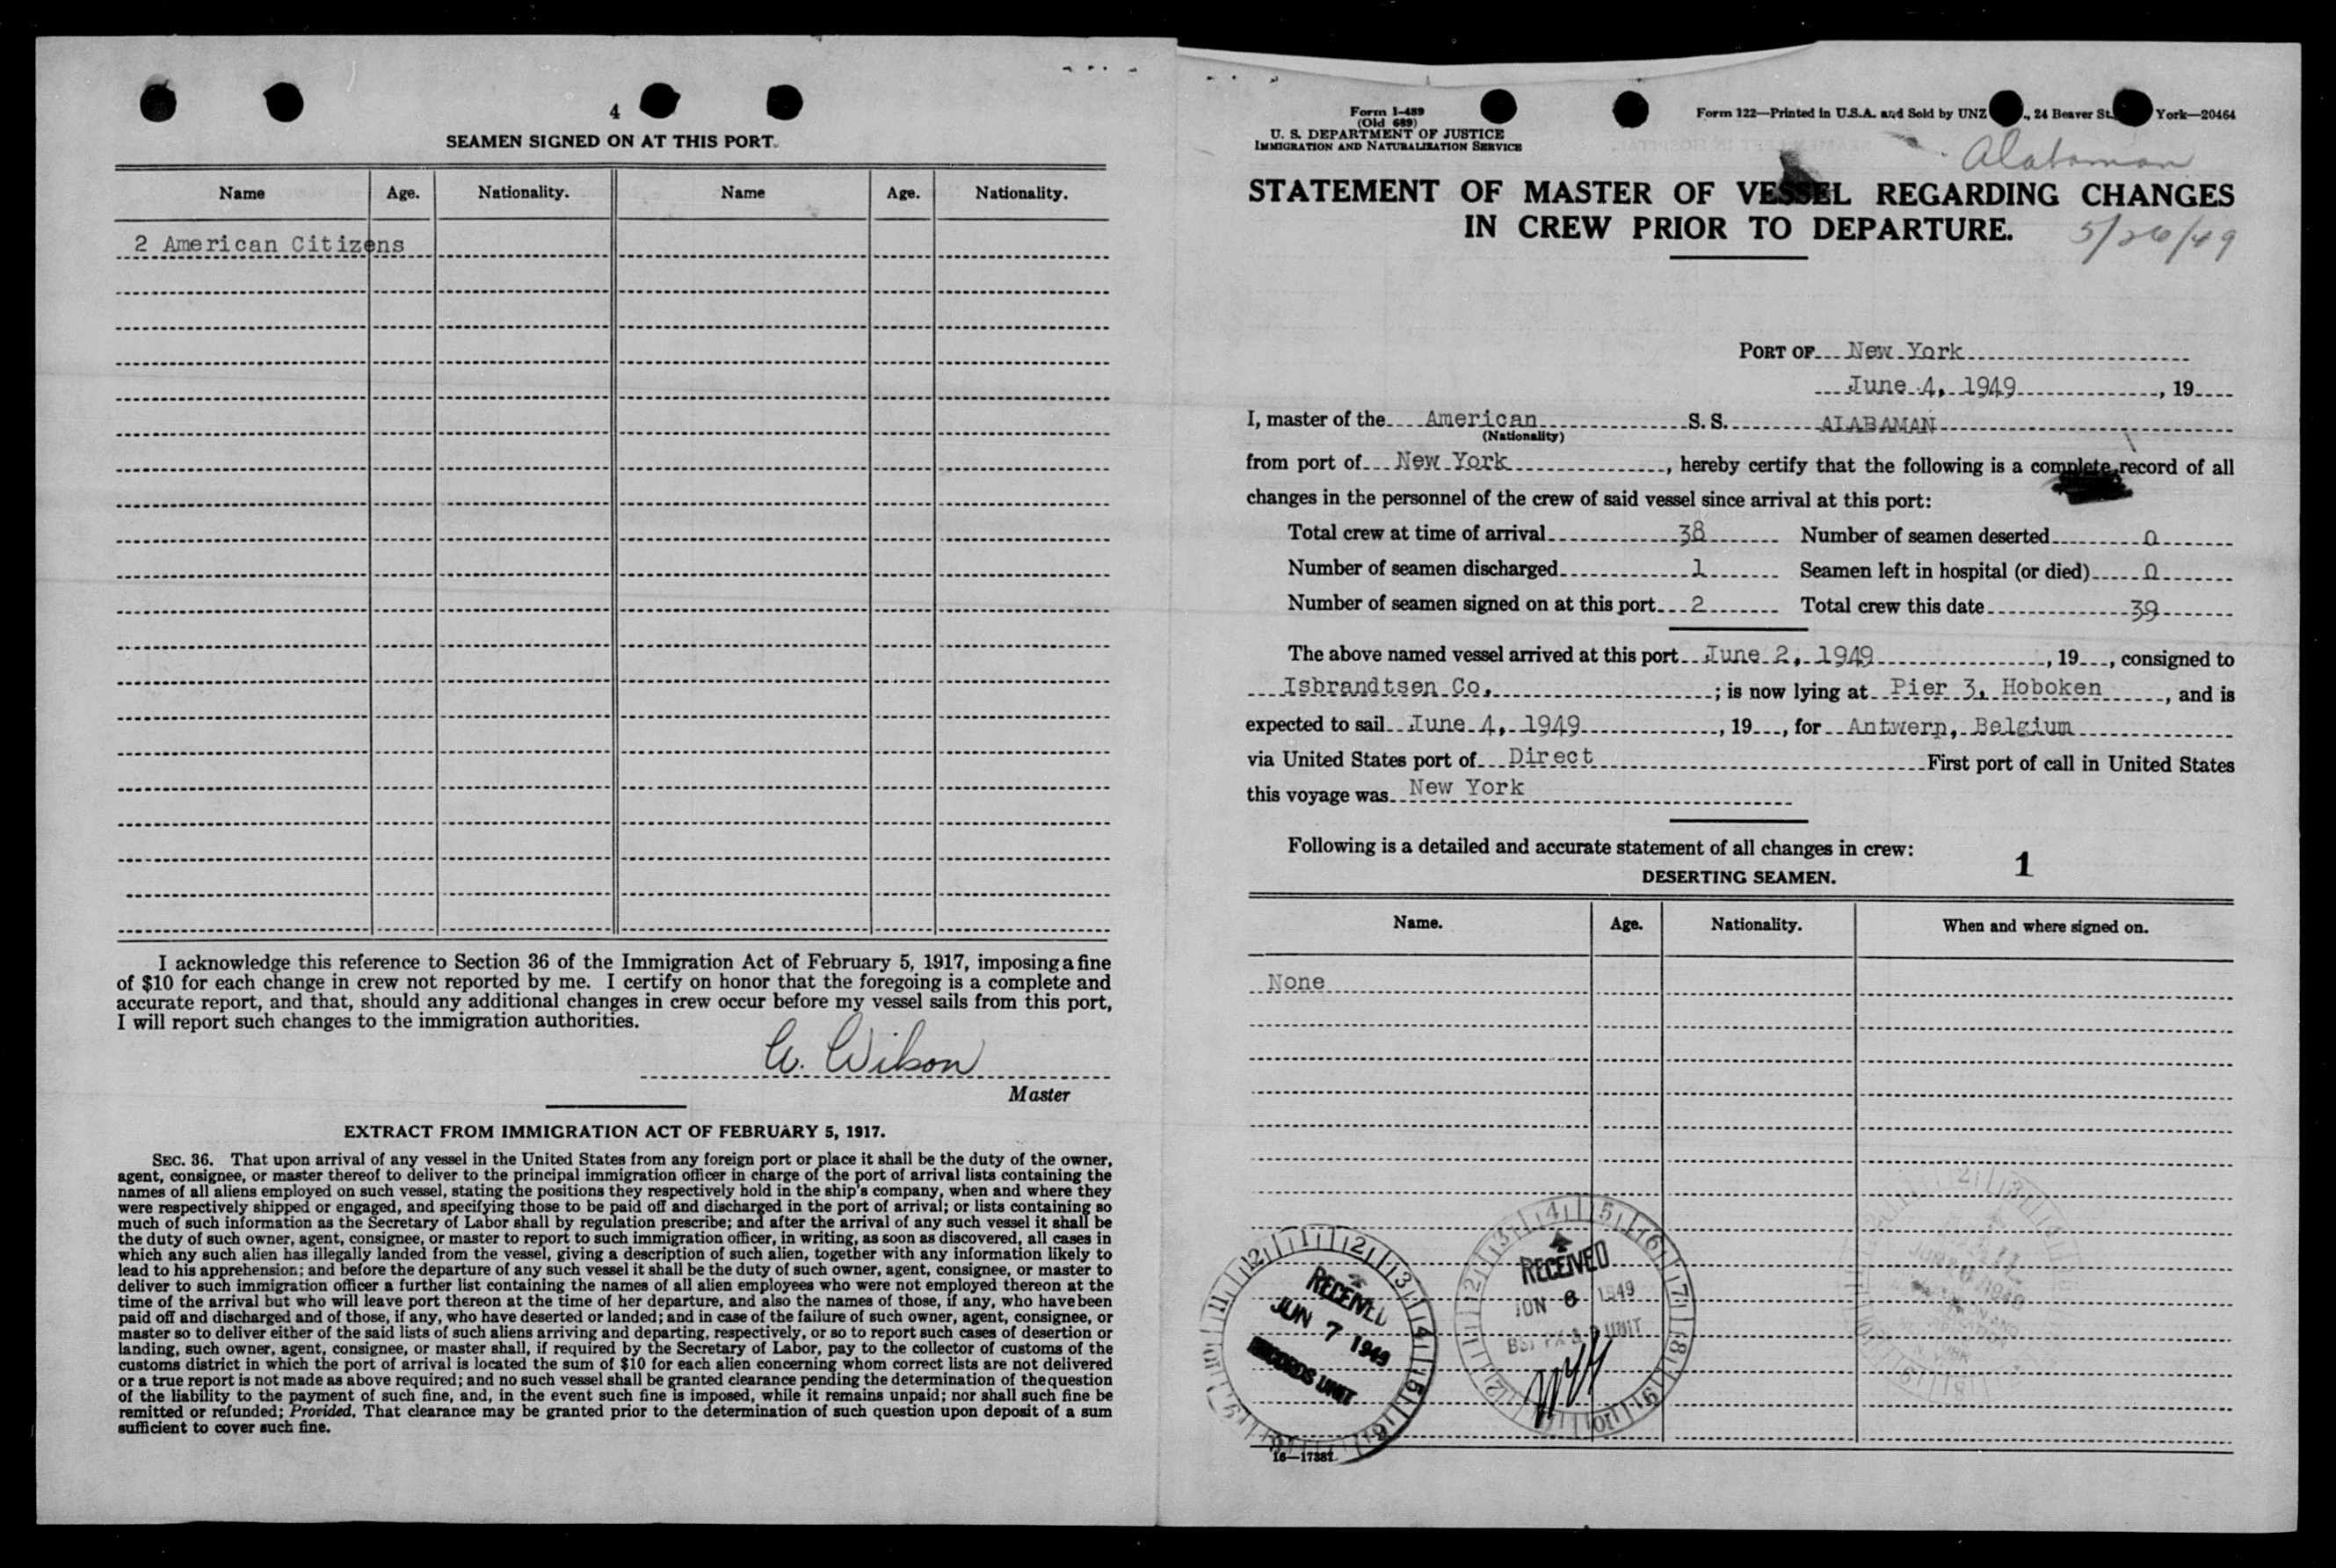 4
SEAMEN SIGNED ON AT THIS PORT.
Name Age. Nationality. Name Age. Nationality.
2 American Citizens
I acknowledge this reference to Section 36 of the Immigration Act of February 5, 1917, imposing a fine
of $10 for each change in crew not reported by me. I certify on honor that the foregoing is a complete and
accurate report, and that, should any additional changes in crew occur before my vessel sails from this port,
I will report such changes to the immigration authorities.
W. Wilson
Master
EXTRACT FROM IMMIGRATION ACT OF FEBRUARY 5, 1917.
SEC. 36. That upon arrival of any vessel in the United States from any foreign port or place it shall be the duty of the owner,
agent, consignee, or master thereof to deliver to the principal immigration officer in charge of the port of arrival lists containing the
names of all aliens employed on such vessel, stating the positions they respectively hold in the ship's company, when and where they
were respectively shipped or engaged, and specifying those to be paid off and discharged in the port of arrival; or lists containing so
much of such information as the Secretary of Labor shall by regulation prescribe; and after the arrival of any such vessel it shall be
the duty of such owner, agent, consignee, or master to report to such immigration officer, in writing, as soon as discovered, all cases in
which any such alien has illegally landed from the vessel, giving a description of such alien, together with any information likely to
lead to his apprehension; and before the departure of any such vessel it shall be the duty of such owner, agent, consignee, or master to
deliver to such immigration officer a further list containing the names of all alien employees who were not employed thereon at the
time of the arrival but who will leave port thereon at the time of her departure, and also the names of those, if any, who have been
paid off and discharged and of those, if any, who have deserted or landed; and in case of the failure of such owner, agent, consignee, or
master so to deliver either of the said lists of such aliens arriving and departing, respectively, or so to report such cases of desertion or
landing, such owner, agent, consignee, or master shall, if required by the Secretary of Labor, pay to the collector of customs of the
customs district in which the port of arrival is located the sum of $10 for each alien concerning whom correct lists are not delivered
or a true report is not made as above required; and no such vessel shall be granted clearance pending the determination of the question
of the liability to the payment of such fine, and, in the event such fine is imposed, while it remains unpaid; nor shall such fine be
remitted or refunded; Provided, That clearance may be granted prior to the determination of such question upon deposit of a sum
sufficient to cover such fine.
Form I-489
(Old 689)
U. S. DEPARTMENT OF JUSTICE
IMMIGRATION AND NATURALIZATION SERVICE
Form 122—Printed in U.S.A. and Sold by UNZ ., 24 Beaver St. York—20464
Alabaman
STATEMENT OF MASTER OF VESSEL REGARDING CHANGES
IN CREW PRIOR TO DEPARTURE.
5/26/49
PORT OF New York
June 4, 1949, 19
I, master of the American S. S. ALABAMAN
(Nationality)
from port of New York, hereby certify that the following is a complete record of all
changes in the personnel of the crew of said vessel since arrival at this port:
Total crew at time of arrival 38 Number of seamen deserted 0
Number of seamen discharged 1 Seamen left in hospital (or died) 0
Number of seamen signed on at this port 2 Total crew this date 39
The above named vessel arrived at this port June 2, 1949, 19, consigned to
Isbrandtsen Co. ; is now lying at Pier 3, Hoboken, and is
expected to sail June 4, 1949, 19, for Antwerp, Belgium
via United States port of Direct First port of call in United States
this voyage was New York
Following is a detailed and accurate statement of all changes in crew:
1
DESERTING SEAMEN.
Name. Age. Nationality. When and where signed on.
None
RECEIVED
JUN 7 1949
RECORDS UNIT
RECEIVED
JUN 6 1949
UNIT
16—17387